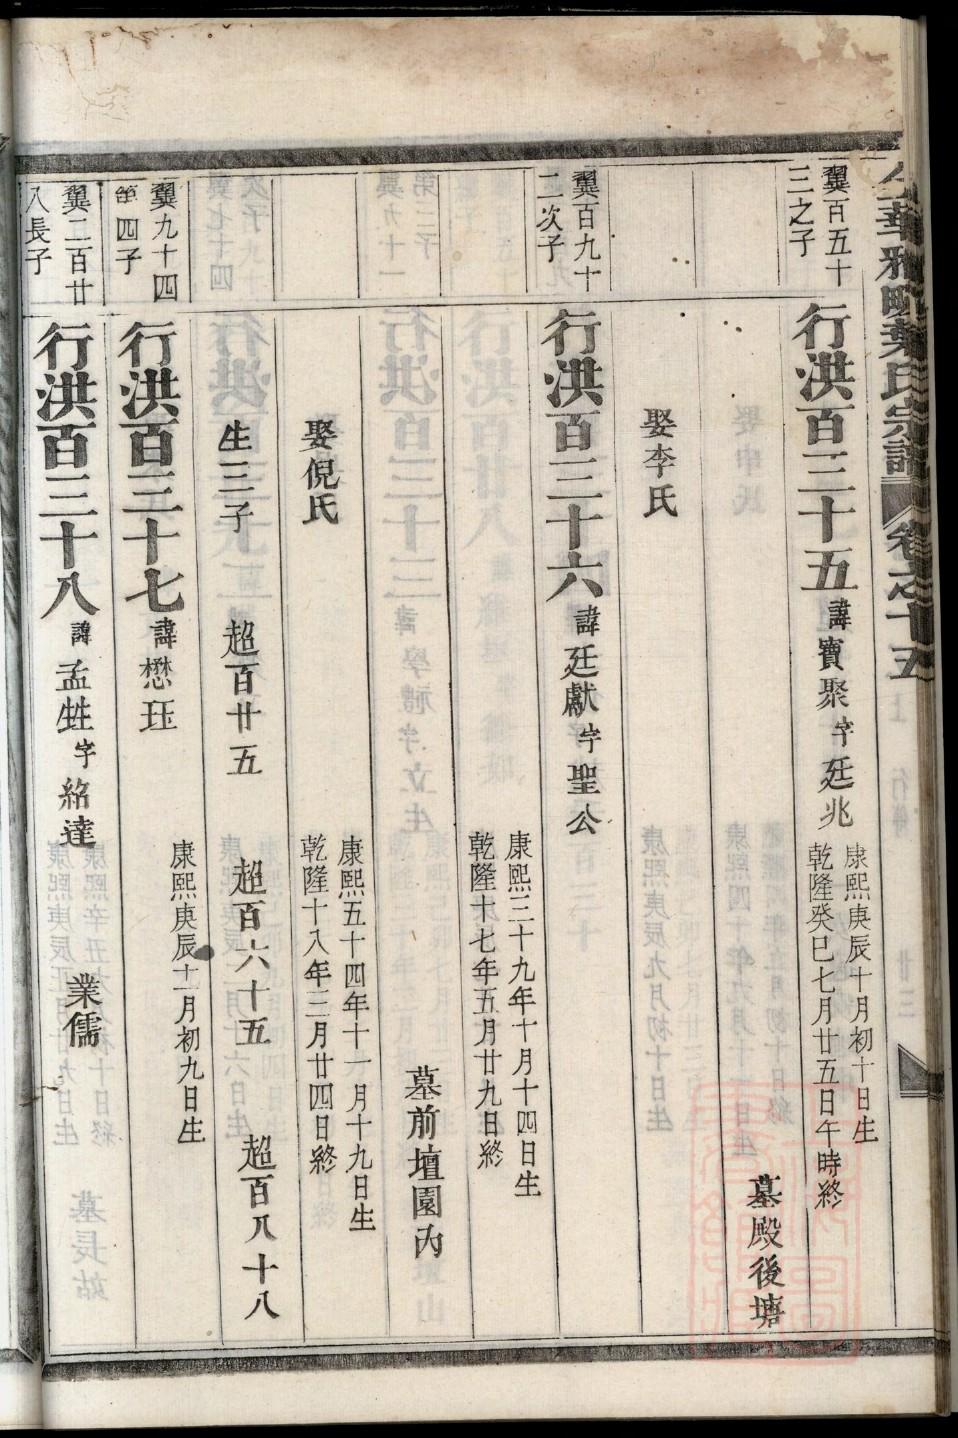 葉氏宗譜 卷之十五
翼百五十
三之子
行洪百三十五 諱寳聚 字廷兆
康熙庚辰十月初十日生
乾隆癸巳七月廿五日午時終
墓殿後塘
娶李氏
翼百九十
二次子
行洪百三十六 諱廷獻 字聖公
康熙三十九年十月十四日生
乾隆十七年五月廿九日終
墓前壇園內
娶倪氏
康熙五十四年十一月十九日生
乾隆十八年三月廿四日終
生三子 超百廿五 超百六十五 超百八十八
翼九十四
第四子
行洪百三十七 諱懋珏
康熙庚辰十二月初九日生
翼二百廿
八長子
行洪百三十八 諱孟甡 字紹達 業儒